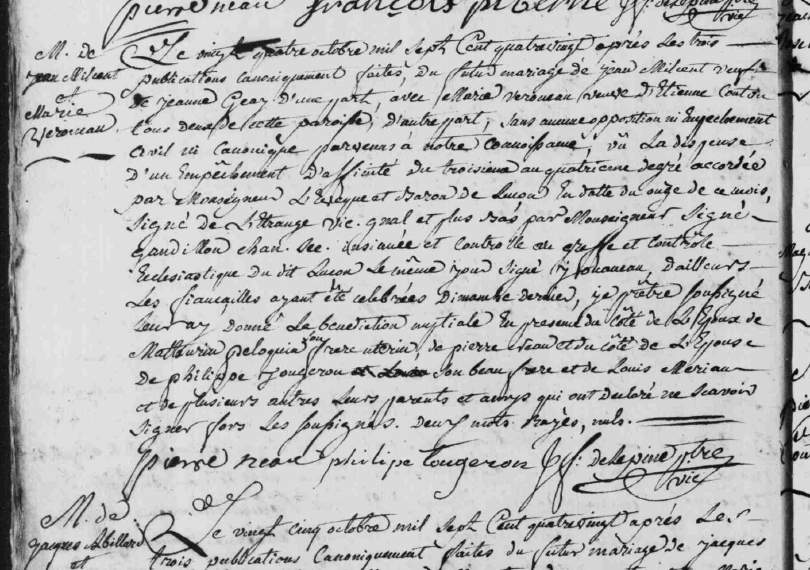 pierre neau françois
M. de
jean Milcent
et
Marie
Veroneau
Le vingt quatre octobre mil sept Cent quatrevingt après Les trois
publications Canoniquement faites, du futur mariage de jean Milcent veuf
de jeanne Geay d'une part, avec Marie veroneau veuve d'Etienne
tous deux de cette paroisse, d'autre part, sans aucune opposition ni Empechement
Civil ni Canonique parvenus à notre Connoissance, vû La dispense
D'un Empêchement D'affinité du troisieme au quatrieme degré accordée
par Monseigneur L'Eveque et Baron de Luçon En datte du onze de ce mois,
Signé de L'Etrange vic. gnal et plus bas par Monseigneur Signé
Gandillon chan. Sec. insinuée et Controllée au greffe et Contrôle
Ecclesiastique du dit Luçon Le même jour Signé D'ailleurs
Les fiançailles ayant été celebrées Dimanche dernier, je prêtre soussigné
leur ay donné La benediction nuptiale En presence du côté de L'Epoux de
Mathurin peloquin frere uterin, de pierre neau et du côté de L'Epouse
de philippe fougeron son beau frere et de Louis
et de plusieurs autres Leurs parents et amys qui ont declaré ne Scavoir
Signer fors Les soussignés. deux mots rayés, nuls.
pierre neau philipe fougeron delepine ptre
vic
M. de
jacques
et
Le vingt cinq octobre mil sept Cent quatrevingt après Les
trois publications Canoniquement faites du futur mariage de jacques